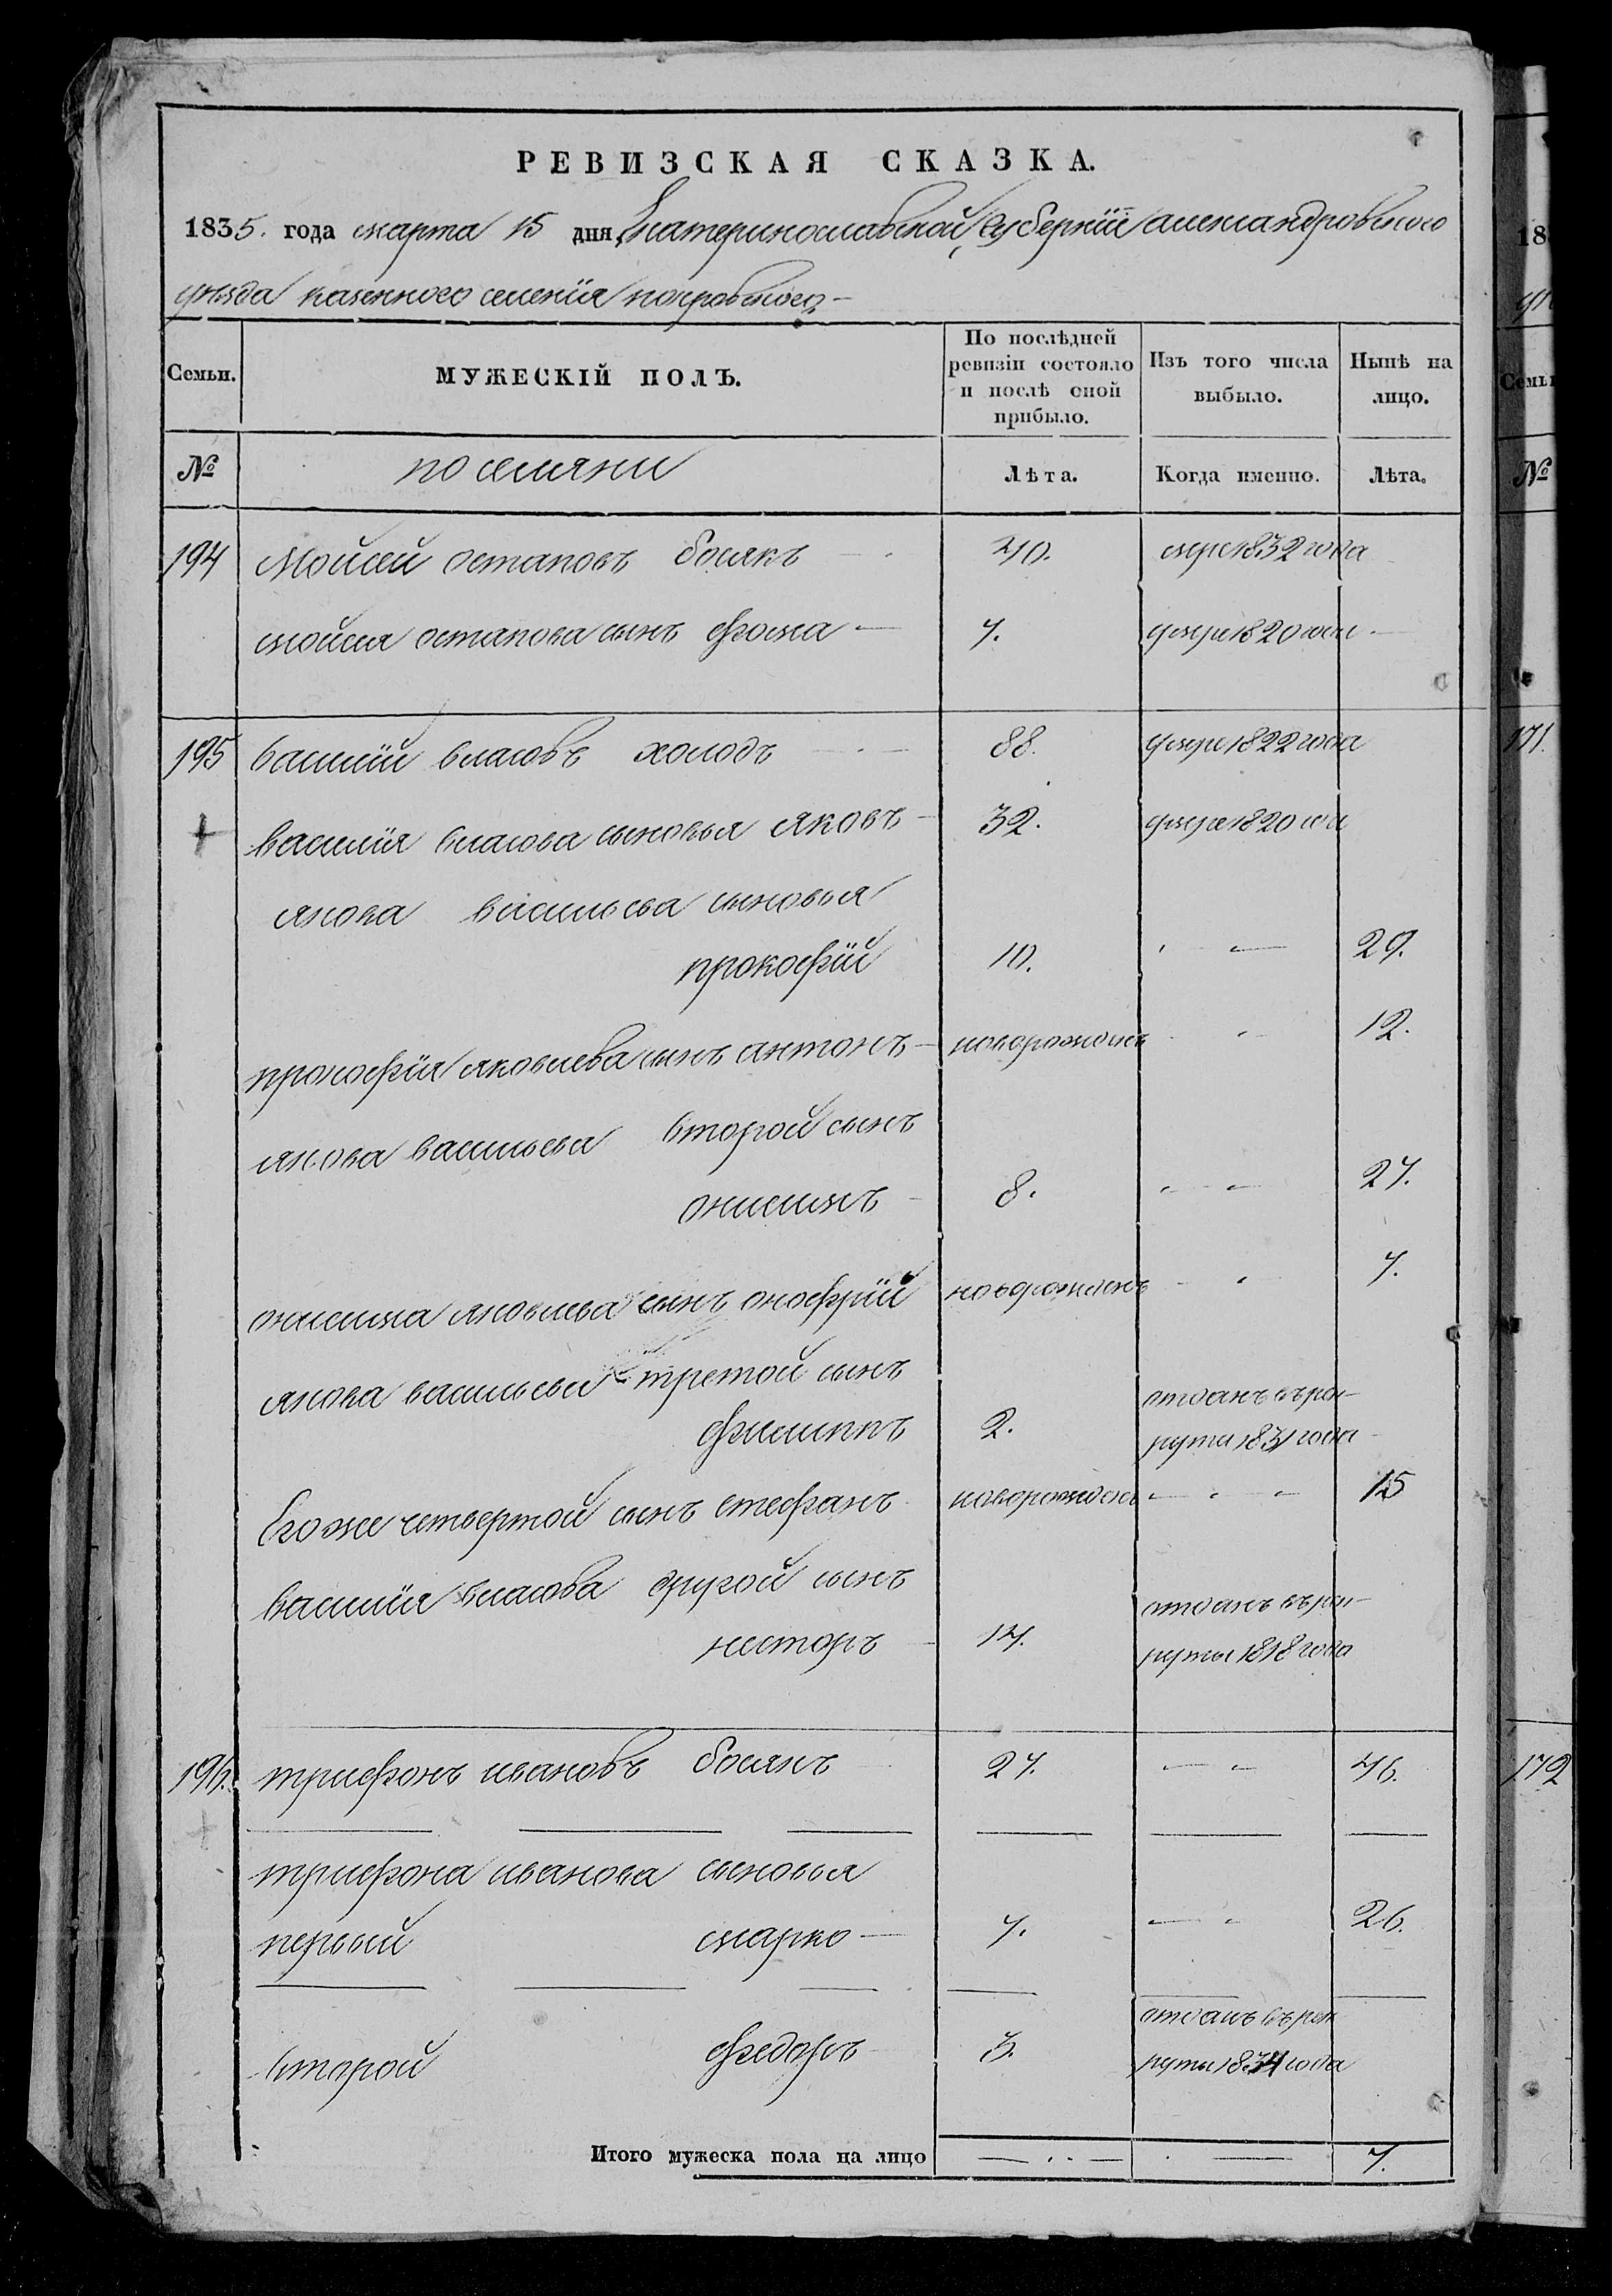 РЕВИЗСКАЯ СКАЗКА.
1835. года марта 15 дня, Екатеринославской Губернїи александровского
уѣзда казенного селенїя покровского
Семьи. МУЖЕСКІЙ ПОЛЪ. По послѣдней ревизіи состояло и послѣ оной прибыло. Изъ того числа выбыло. Нынѣ на лицо.
№ поселяни Лѣта. Когда именно. Лѣта.
194 Мойсей остаповъ босякъ 40. умре 1832 года
мойсея остапова сынъ фома 7. умре 1820 года
195 василїй власовъ холодъ 88. умре 1822 года
василїя власова сыновья яковъ 32. умре 1820 года
якова васильева сыновья
прокофїй 10. 29.
прокофїя яковлева сынъ антонъ новорожденъ 12.
якова васильева второй сынъ
онисимъ 8. 27.
онисима яковлева сынъ онофрїй новорожденъ 7.
якова васильева третой сынъ
филиппъ 2. отданъ въ рек-
руты 1831 года
Егоже четвертой сынъ стефанъ новорожденъ 15
василїя власова другой сынъ
несторъ 14. отданъ въ рек-
руты 1818 года
196. трифонъ ивановъ босякъ 27. 46.
трифона иванова сыновья
первый марко 7. 26.
второй федоръ 3. отданъ въ рек
руты 1834 года
Итого мужеска пола на лицо 7.
18
Семьи
№
171.
172